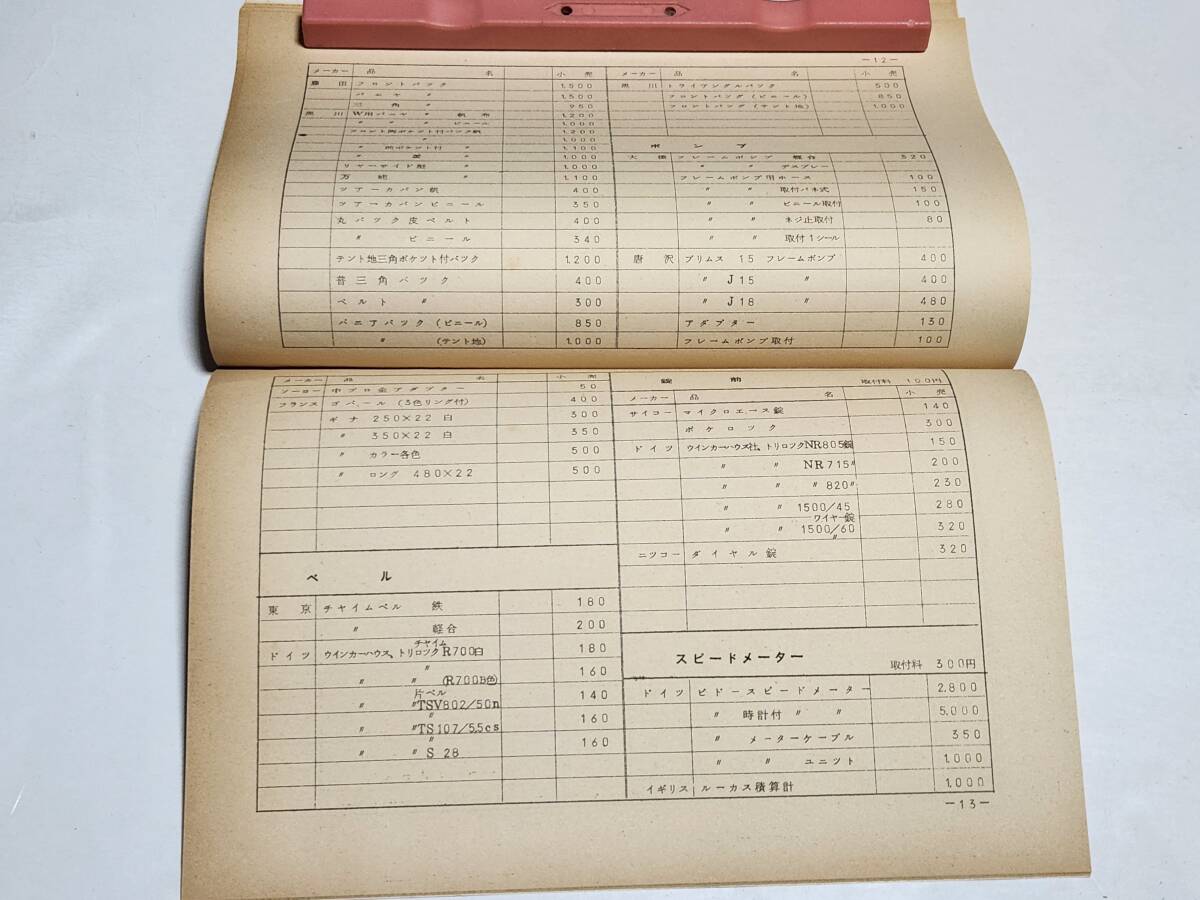 －12－
メーカー 品 名 小 売
フロントバック 1,500
パニヤ 〃 1,500
三 角 〃 950
黒 川 W用パニヤ 〃 帆 布 1,200
〃 〃 ビニール 1,000
1,200
〃 1,000
〃 〃 1,100
〃 〃 1,000
リヤーサイド 〃 1,000
万 能 〃 1,100
ツアーカバン帆 400
ツアーカバンビニール 350
丸バック皮ベルト 400
〃 ビニール 340
テント地三角ポケット付バック 1,200
普三角バック 400
ベルト 〃 300
パニアバック (ビニール) 850
〃 (テント地) 1,000
メーカー 品 名 小 売
黒 川 トライアングルバック 500
フロントバッグ (ビニール) 850
フロントバッグ (テント地) 1,000
ポ ン プ
フレームポンプ 軽合 320
〃 〃 デスプレー
フレームポンプ用ホース 100
〃 〃 取付バネ式 150
〃 〃 ビニール取付 100
〃 〃 ネジ止取付 80
〃 〃 取付1シール
唐 沢 プリムス 15 フレームポンプ 400
〃 J15 〃 400
〃 J18 〃 480
アダプター 130
フレームポンプ取付 100
メーカー 品 名 小 売
ソーヨー 中ブロ金アダプター 50
フランス ゴバ、ール (3色リング付) 400
ギナ 250×22 白 300
〃 350×22 白 350
〃 カラー各色 500
〃 ロング 480×22 500
ベ ル
東 京 チャイムベル 鉄 180
〃 軽合 200
チャイム
ドイツ ウインカーハウス、トリロックR700白 180
〃
〃 〃 (R700B色) 160
片ベル
〃 〃TSV802/50n 140
〃
〃 〃TS107/5.5cs 160
〃
〃 〃 S 28 160
錠 前 取付料 100円
メーカー 品 名 小 売
サイコー マイクロエース錠 140
ポケロック 300
ドイツ ウインカーハウス社、トリロックNR805錠 150
〃 〃 NR715〃 200
〃 〃 〃820〃 230
〃 〃 1500/45 280
ワイヤー錠
〃 〃 1500/60 320
〃
ニツコー ダイヤル錠 320
スピードメーター 取付料 300円
ドイツ ビドースピードメーター 2,800
〃 時計付 〃 〃 5,000
〃 メーターケーブル 350
〃 〃 ユニツト 1,000
イギリス ルーカス積算計 1,000
－13－